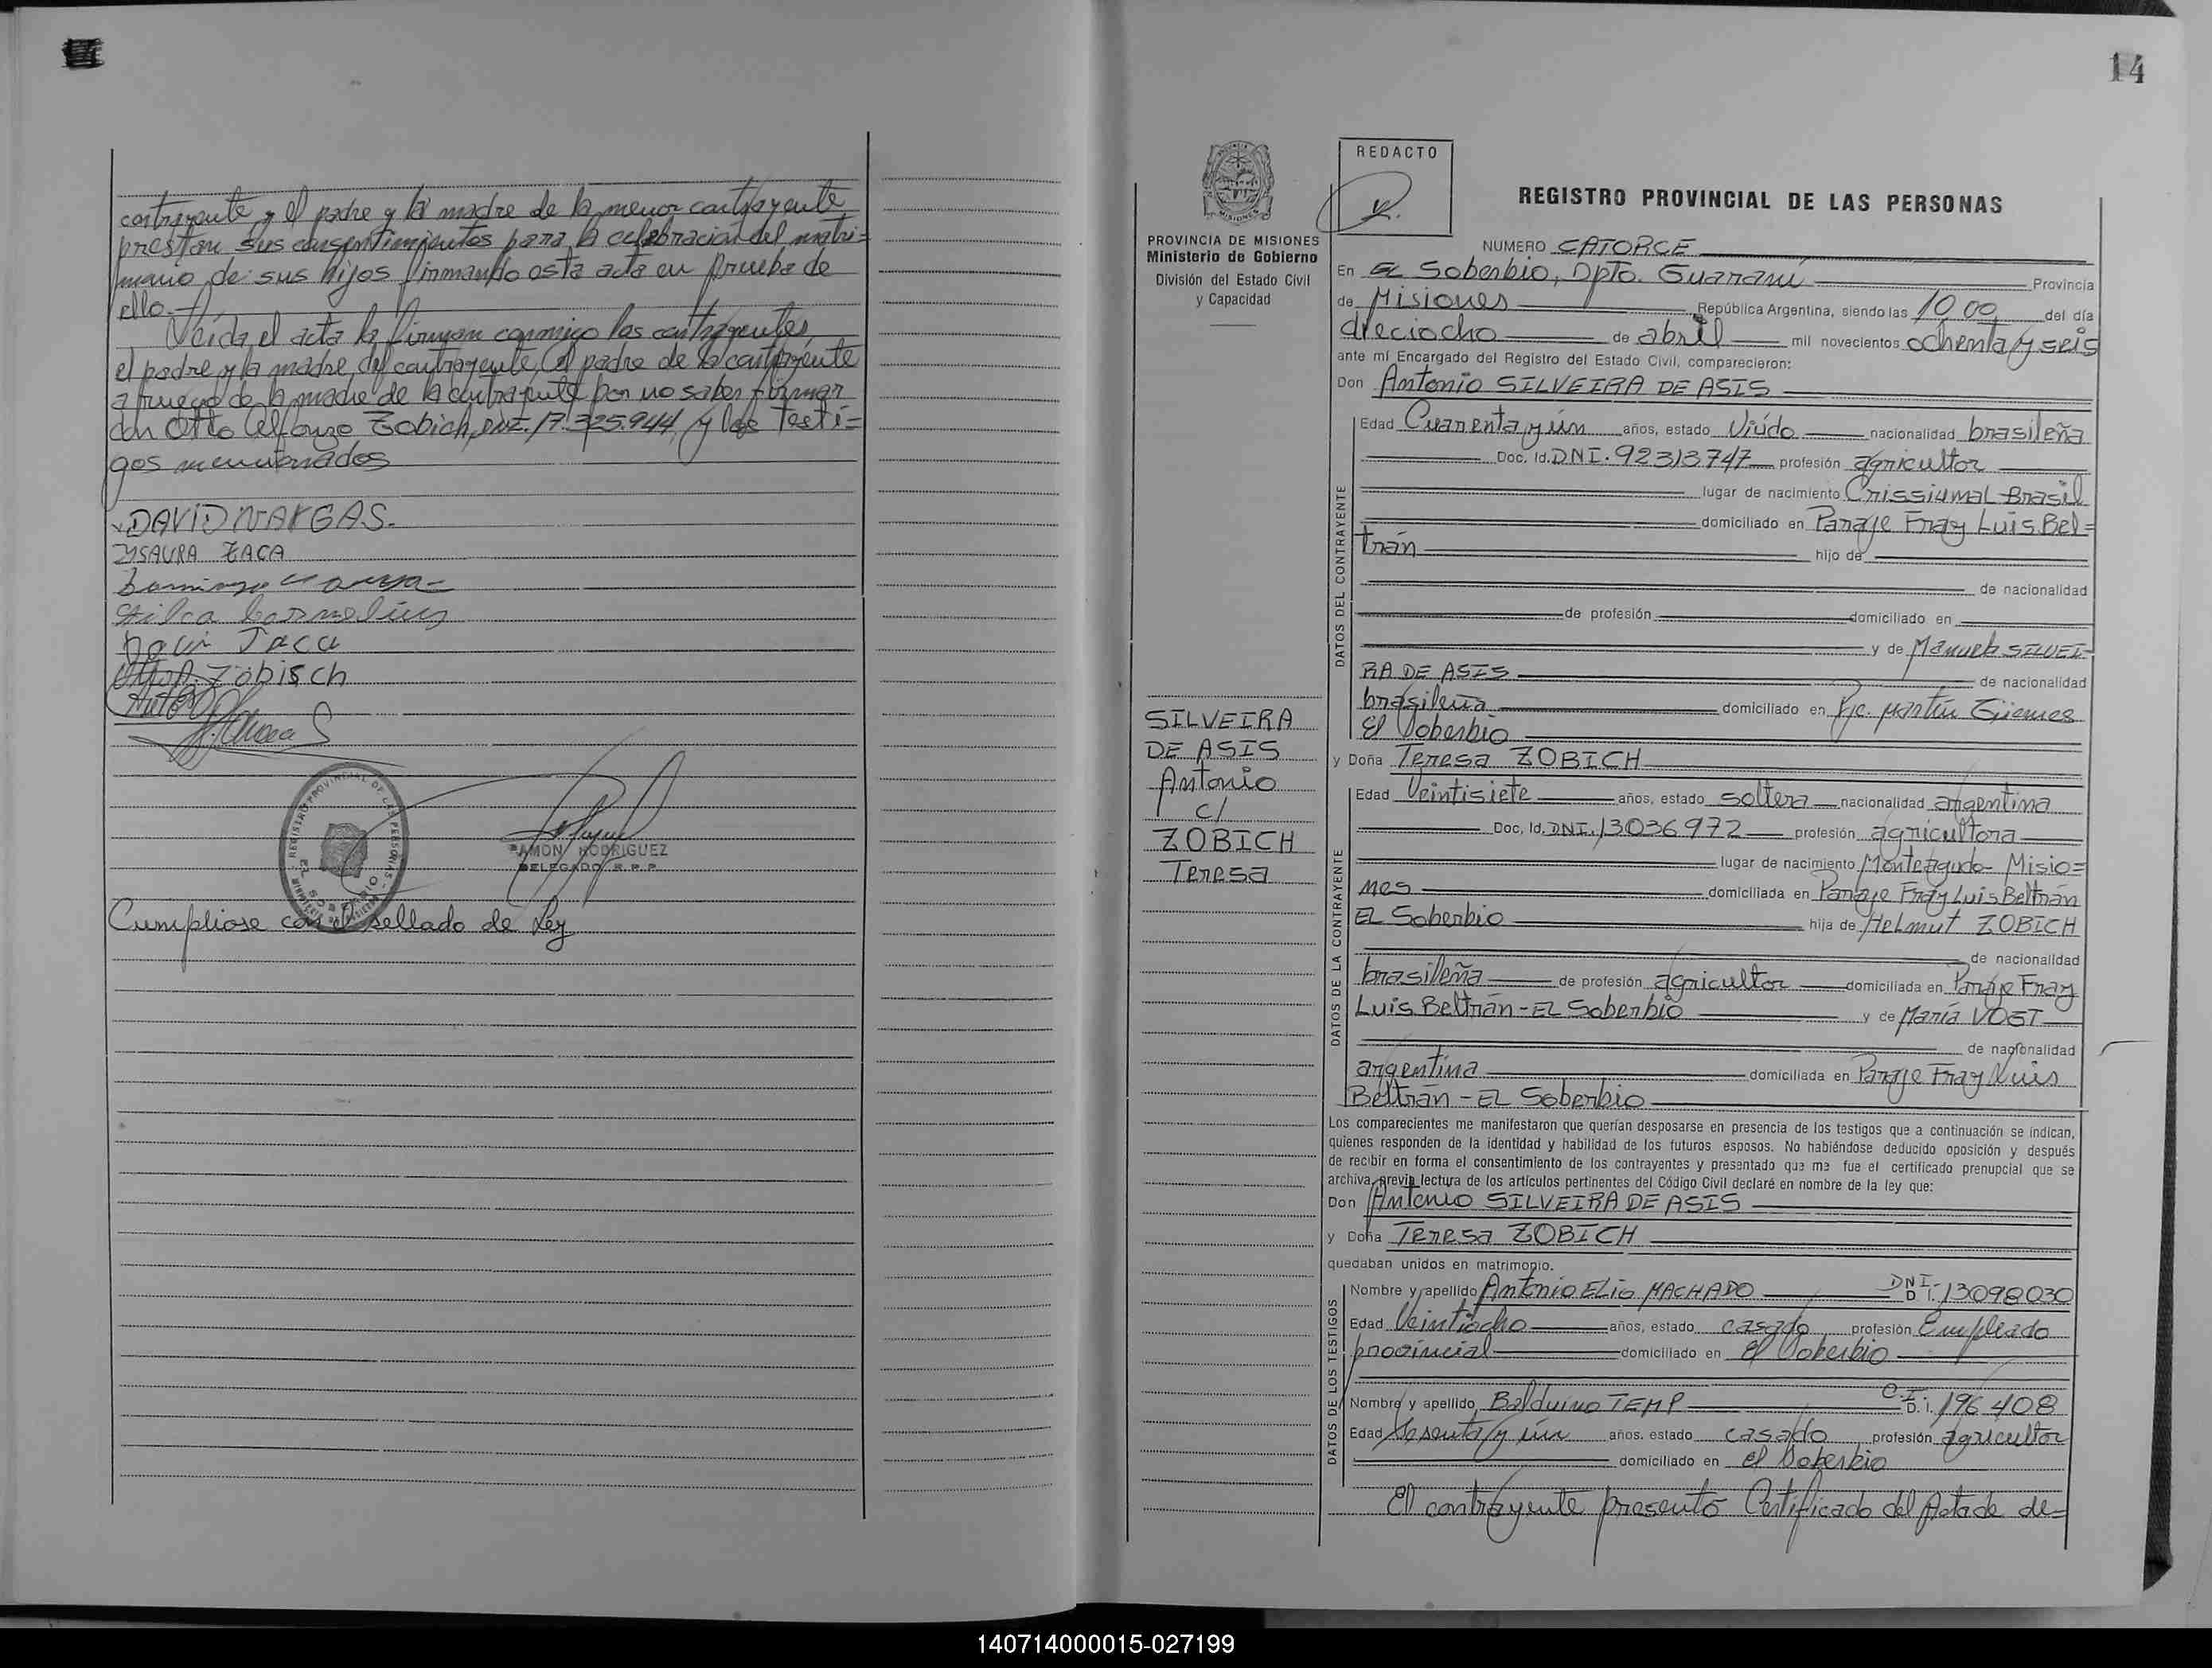 contrayente y el padre y la madre de la menor contrayente
prestan sus consentimientos para la celebración del matri=
monio de sus hijos firmando esta acta en prueba de
ello.-
Leída el acta la firman conmigo los contrayentes,
el padre y la madre del contrayente, el padre de la contrayente
a ruego de la madre de la contrayente por no saber firmar
don Otto Alfonzo Zobich, DNI. 17.325.944, y los testi=
gos mencionados
DAVID VARGAS.
YSAURA ZACA
Otto A. Zobisch
REGISTRO PROVINCIAL DE LAS PERSONAS
RAMON RODRIGUEZ
DELEGADO R.P.P.
Cumpliose con el sellado de Ley
14
REDACTO
PROVINCIA DE MISIONES
Ministerio de Gobierno
División del Estado Civil
y Capacidad
SILVEIRA
DE ASIS
Antonio
c/
ZOBICH
Teresa
REGISTRO PROVINCIAL DE LAS PERSONAS
NUMERO CATORCE
En EL Soberbio, Dpto. Guaraní Provincia
de Misiones República Argentina, siendo las 10,00 del día
dieciocho de abril mil novecientos ochenta y seis
ante mí Encargado del Registro del Estado Civil, comparecieron:
Don Antonio SILVEIRA DE ASIS
DATOS DEL CONTRAYENTE
Edad Cuarenta y ún años, estado Viúdo nacionalidad brasileña
Doc. Id. DNI. 92313747 profesión agricultor
lugar de nacimiento Crissiumal-Brasil
domiciliado en Paraje Fray Luis Bel=
trán hijo de
de nacionalidad
de profesión domiciliado en
y de Manuela SILVEI-
RA DE ASIS de nacionalidad
brasileña domiciliado en Pje. Martín Güemes
El Soberbio
y Doña Teresa ZOBICH
DATOS DE LA CONTRAYENTE
Edad Veintisiete años, estado soltera nacionalidad argentina
Doc. Id. DNI. 13036972 profesión agricultora
lugar de nacimiento Monteagudo- Misio=
nes domiciliada en Paraje Fray Luis Beltrán
EL Soberbio hija de Helmut ZOBICH
de nacionalidad
brasileña de profesión agricultor domiciliada en Paraje Fray
Luis Beltrán-EL Soberbio y de María VOGT
de nacionalidad
argentina domiciliada en Paraje Fray Luis
Beltrán-EL Soberbio
Los comparecientes me manifestaron que querían desposarse en presencia de los testigos que a continuación se indican,
quienes responden de la identidad y habilidad de los futuros esposos. No habiéndose deducido oposición y después
de recibir en forma el consentimiento de los contrayentes y presentado que me fue el certificado prenupcial que se
archiva, previa lectura de los artículos pertinentes del Código Civil declaré en nombre de la ley que:
Don Antonio SILVEIRA DE ASIS
y Doña Teresa ZOBICH
quedaban unidos en matrimonio.
DATOS DE LOS TESTIGOS
Nombre y apellido Antonio ELio MACHADO DNI- D.I. 13098030
Edad Veintiocho años, estado casado profesión Empleado
provincial domiciliado en El Soberbio
Nombre y apellido Balduino TEMP C.I. D.I. 196408
Edad Sesenta y ún años, estado casado profesión agricultor
domiciliado en El Soberbio
El contrayente presentó Certificado del Acta de de=
140714000015-027199